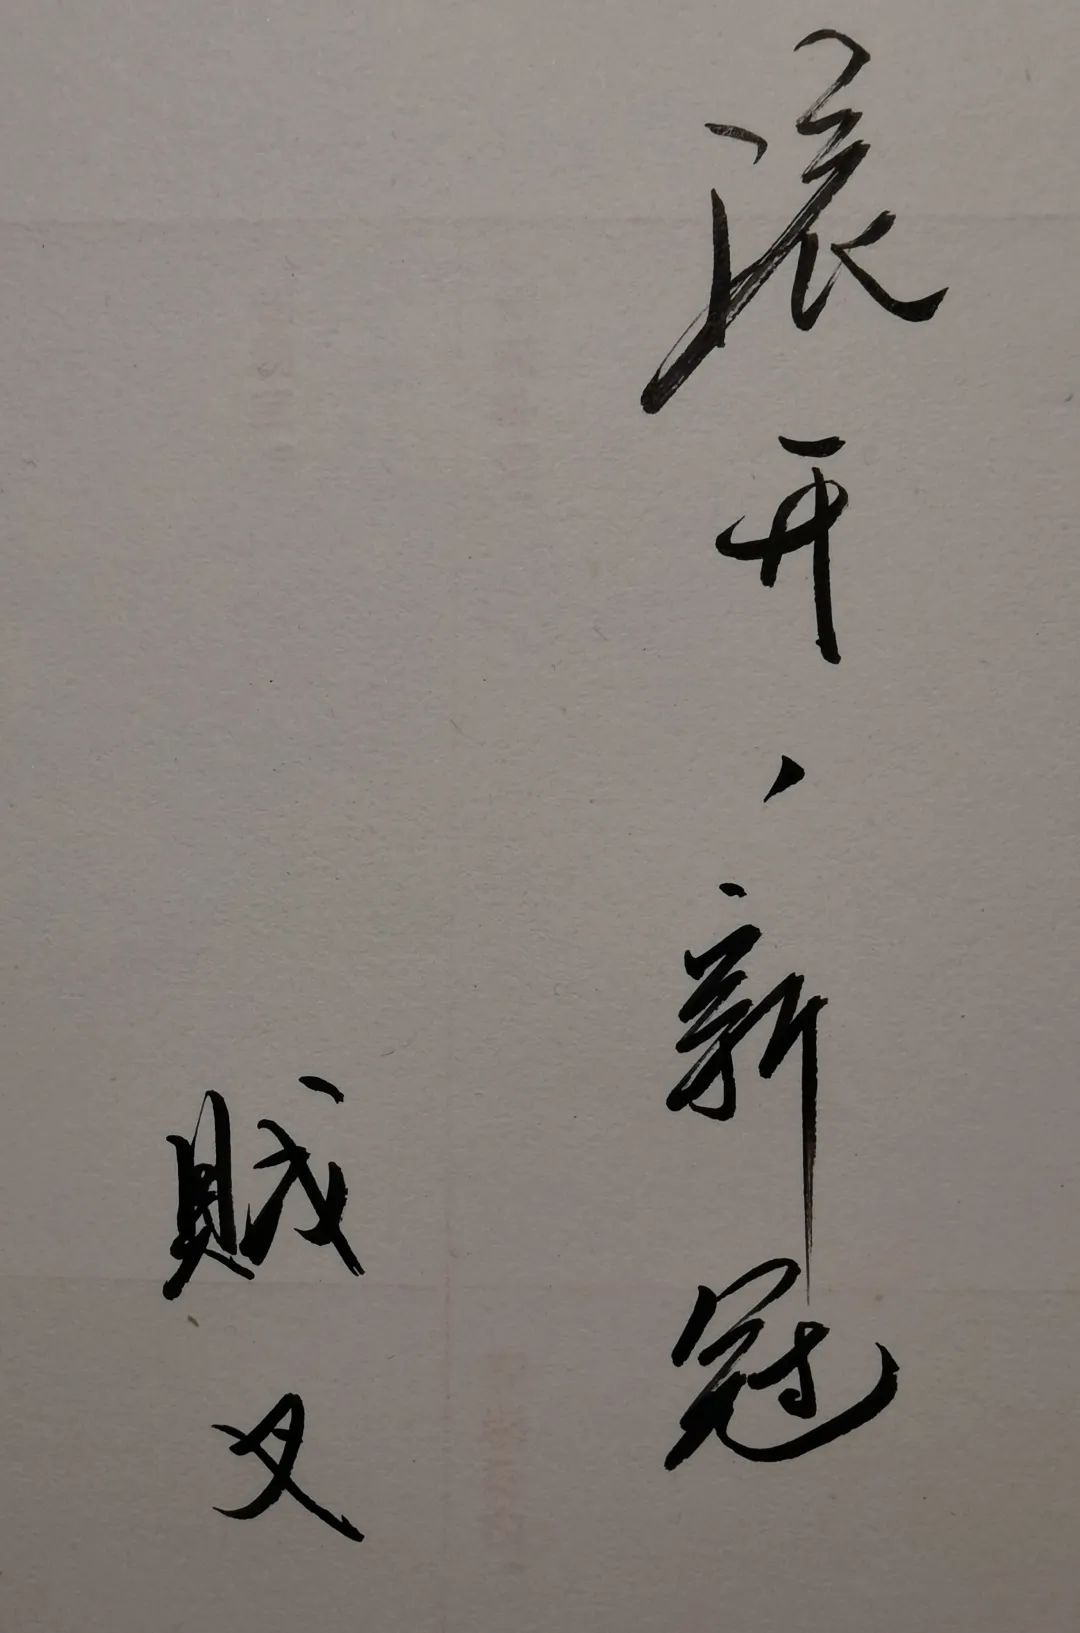 滚开，新冠
贼又